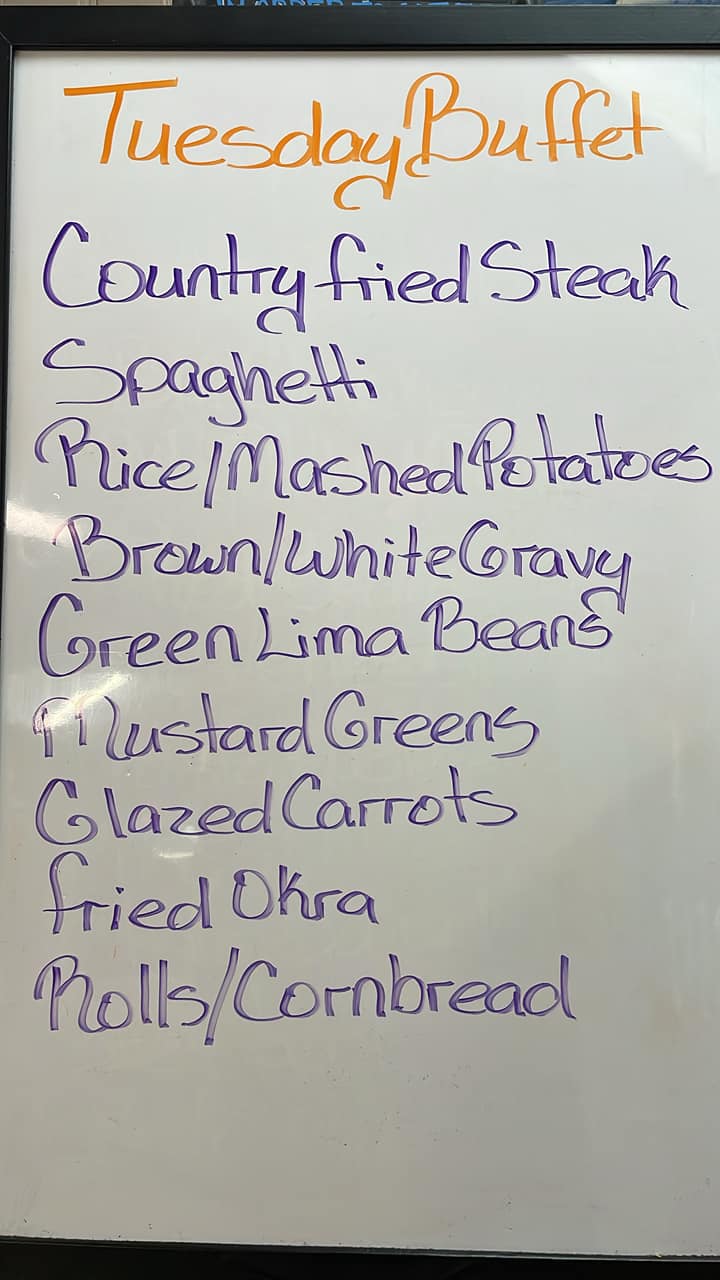 Tuesday Buffet
Country fried Steak
Spaghetti
Rice/Mashed Potatoes
Brown/White Gravy
Green Lima Beans
Mustard Greens
Glazed Carrots
fried Okra
Rolls/Cornbread